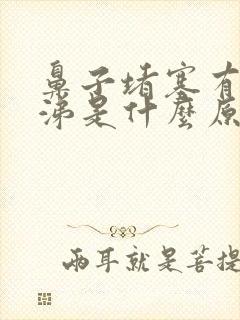 鼻子堵塞有
涕是什麼原
兩耳就是菩提